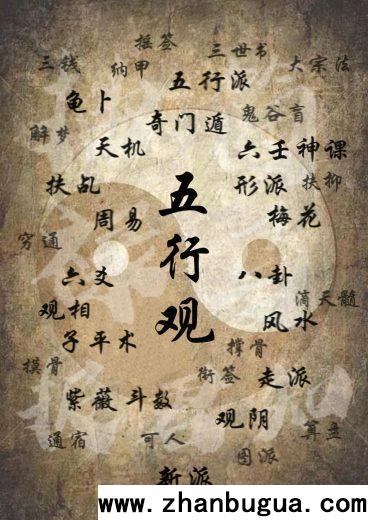 摇签
三世书
三钱
纳甲
五行派
大宗法
龟卜
奇门遁
鬼谷盲
解梦
天机
六壬神课
扶乩
形派
扶抑
五行观
周易
梅花
穷通
六爻
八卦
滴天髓
观相
风水
子平术
撑骨
摸骨
衔签
走派
紫薇斗数
观阴
通宿
可人
图派
新派
www.zhanbugua.com